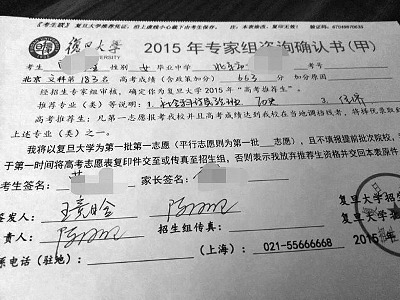 《考生联》复旦大学推荐凭证，沿上虚线小心裁下由考生保存。 注：本表涂改、复印无效）
復旦大學 2015 年专家组咨询确认书(甲)
考生 性别 女 毕业中学
北京 文科第183名 高考成绩（含政策加分） 663 分 加分原因
经招生专家组审核，确定你为复旦大学 2015 年“高考推荐生”。
推荐专业（类）等说明：1. 历史
高考推荐生：凡第一志愿报考我校并且高考成绩达到我校在当地调档线者，将择优录取
上述专业（类）之一。
我将以复旦大学为第一批第一志愿（平行志愿则为第一批 志愿），且不填报提前批次院校，
于第一时间将高考志愿表复印件交至或传真至招生组，否则表示我放弃推荐生资格并交回本表原件
考生签名： 家长签名：
签发人： 复旦大学招生
责人： 招生组传真： 复旦大学
系电话（驻地）： （上海）：021-55666668 2015 年